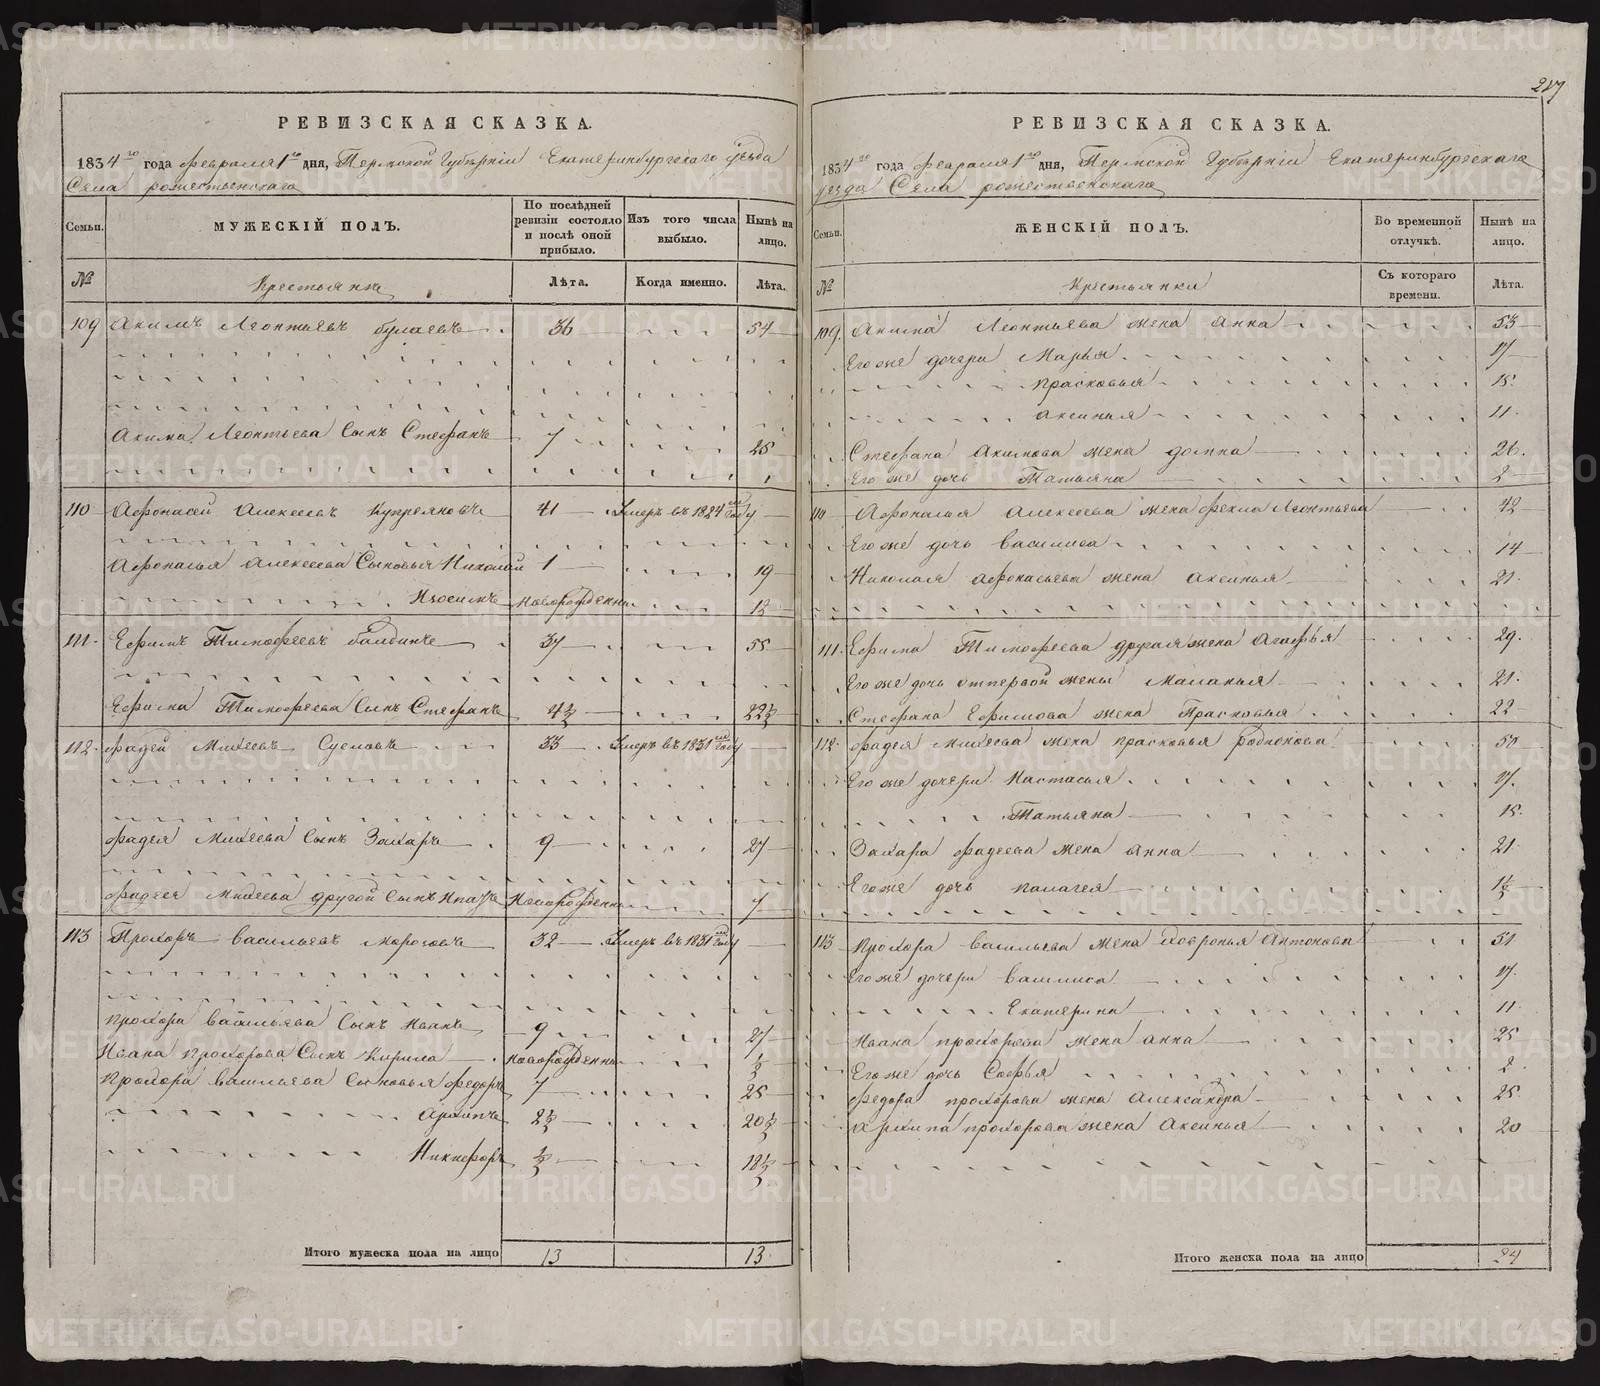 217
РЕВИЗСКАЯ СКАЗКА.
1834го года февраля 1го дня, Пермской Губернiи Екатеринбургскаго уезда
Села рожественскаго
Семьи.
МУЖЕСКIЙ ПОЛЪ.
По послѣдней ревизiи состояло и послѣ оной прибыло.
Изъ того числа выбыло.
Нынѣ на лицо.
№
Крестьяне
Лѣта.
Когда именно.
Лѣта.
109 Акимъ Леонтьевъ булаевъ 36 54
Акима Леонтьева Сынъ Стефанъ 7 25
110 Афонасей Алексеевъ Купреяновъ 41 Умеръ въ 1824м году
Афонасья Алексеева Сыновья Николай 1 19
новорожденны 12
111 Ефимъ Тимофеевъ балдинъ 37 55
Ефима Тимофеева Сынъ Стефанъ 4½ 22½
112 фадей Михеевъ Сусловъ 33 Умеръ въ 1831м году
фадея Михеева Сынъ Захаръ 9 27
фадея Михеева другой Сынъ Новорожденны 7
113 Прохоръ васильевъ морозовъ 32 Умеръ въ 1831м году
прохора васильева Сынъ Иванъ 9 27
Ивана прохорова Сынъ Кирила новорожденны ½
Прохора васильева Сыновья федоръ 7 25
Архипъ 2½ 20½
Никифоръ ½ 18½
Итого мужеска пола на лицо 13 13
РЕВИЗСКАЯ СКАЗКА.
1834го года февраля 1го дня, Пермской Губернiи Екатеринбургскаго
уезда Села рожественскаго
Семьи.
ЖЕНСКIЙ ПОЛЪ.
Во временной отлучкѣ.
Нынѣ на лицо.
№
Крестьянки
Съ котораго времени.
Лѣта.
109. Акима Леонтьева жена Анна 53
Его же дочери Марья 17
прасковья 15
аксинья 11
Стефана Акимова жена домна 26
Его же дочь Татьяна 2
110 Афонасья Алексеева жена фекла Леонтьева 42
Его же дочь василиса 14
Николая афонасьева жена Аксинья 21
111. Ефима Тимофеева другая жена Агафья 29
Его же дочь отпервой жены Маланья 21
Стефана Ефимова жена Прасковья 22
112. фадея Михеева жена прасковья родионова 50
Его же дочери Настасья 17
Татьяна 15
Захара фадеева жена анна 21
Его же дочь палагея 1½
113 прохора васильева жена Ховронья Антонова 51
Его же дочери василиса 17
Екатерина 11
Ивана прохорова жена анна 25
Его же дочь Софья 2
федора прохорова жена Александра 25
Архипа прохорова жена Аксинья 20
Итого женска пола на лицо 24
METRIKI.GASO-URAL.RU